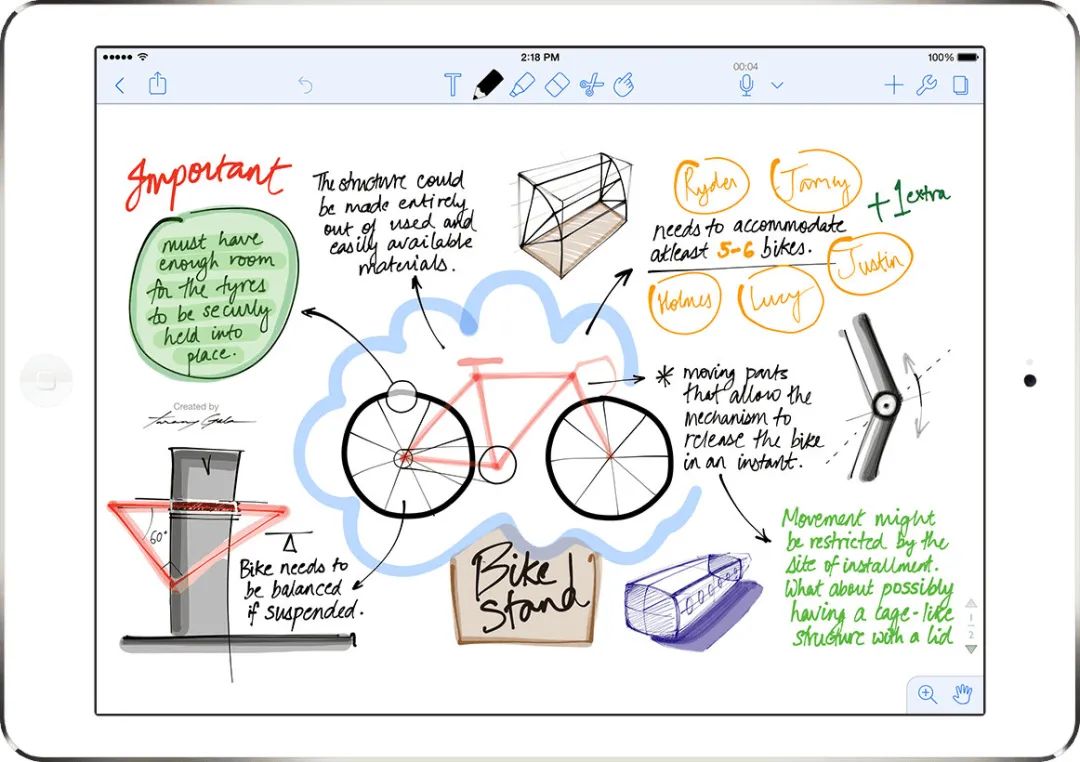 2:18 PM
100%
T
00:04
Important
must have
enough room
for the tyres
to be securly
held into
place.
The structure could
be made entirely
out of used and
easily available
materials.
Ryder
+1 extra
needs to accommodate
atleast 5-6 bikes.
Justin
Holmes
Lucy
* moving parts
that allow the
mechanism to
release the bike
in an instant.
Created by
60°
Bike needs to
be balanced
if suspended.
Bike
stand
Movement might
be restricted by the
site of installment.
What about possibly
having a cage-like
structure with a lid
1
2